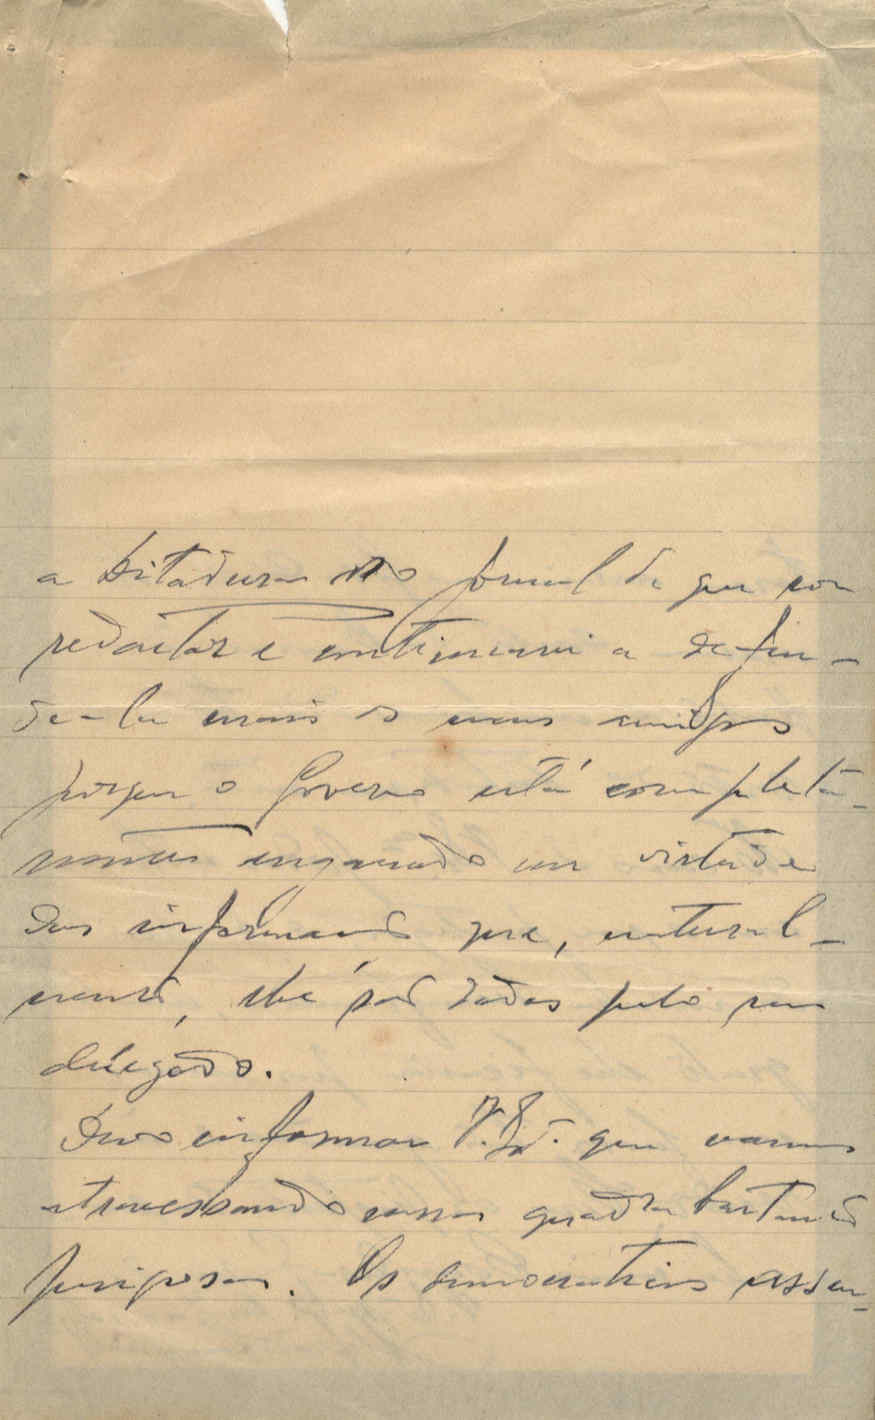 a Ditadura no jornal de que sou
redactor e continuarei a defen-
de-la mais os meus amigos
porque o Governo está completa-
mente enganado em virtude
das informações que, natural-
mente, lhe são dadas pelo seu
delegado.
Devo informar V. Exª. que vamos
atravessando uma quadra bastante
perigosa. Os democraticos assen-